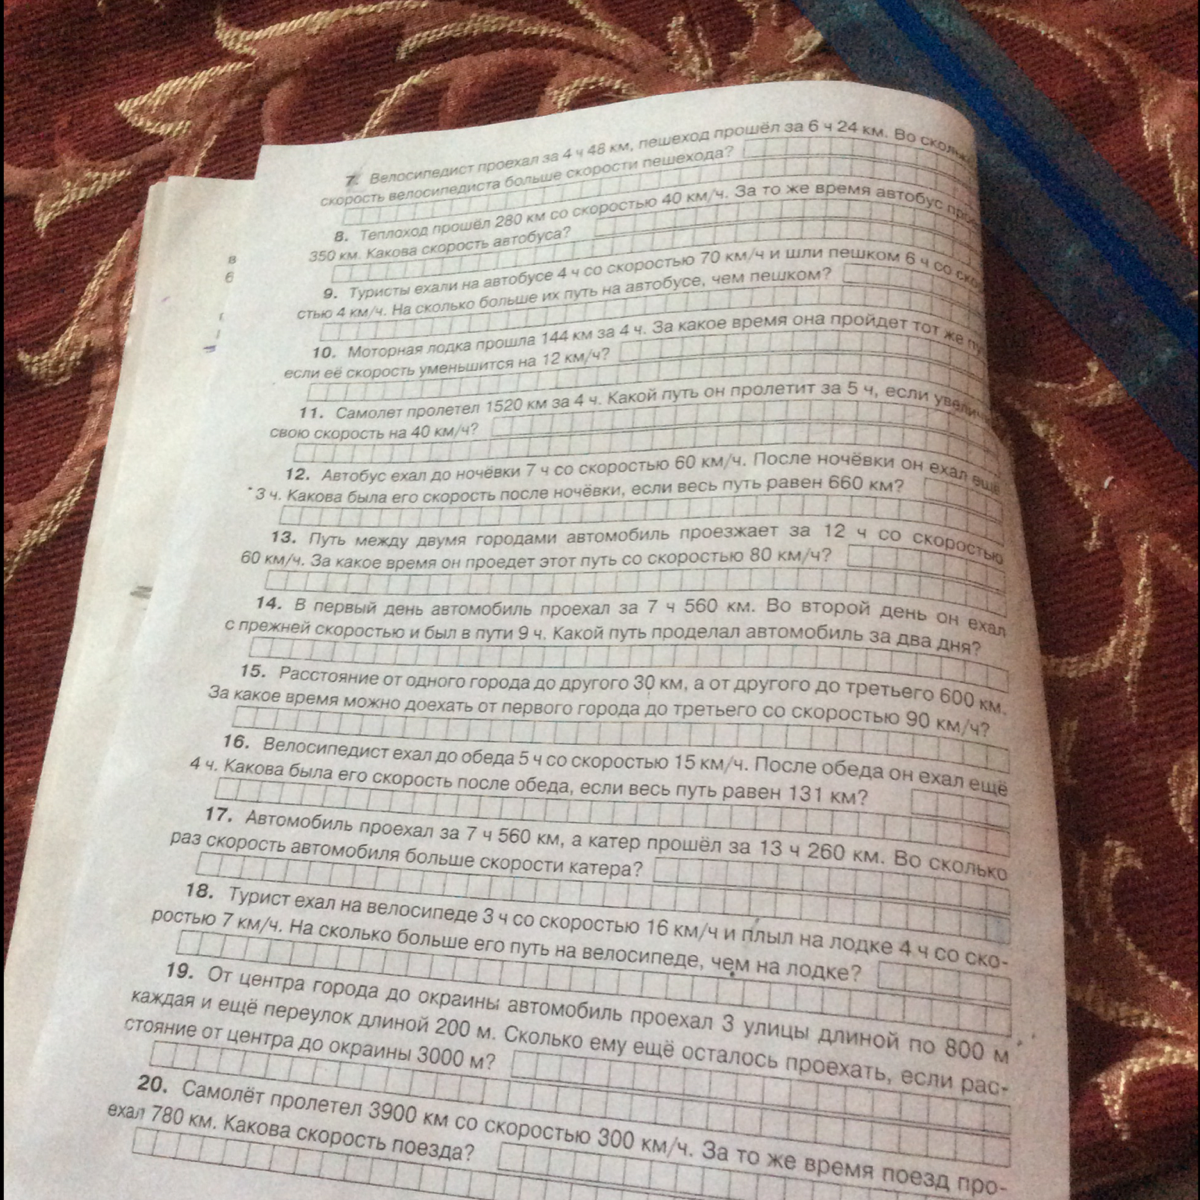 7. Велосипедист проехал за 4 ч 48 км, пешеход прошёл за 6 ч 24 км. Во
скорость велосипедиста больше скорости пешехода?
8. Теплоход прошёл 280 км со скоростью 40 км/ч. За то же время автобус
350 км. Какова скорость автобуса?
9. Туристы ехали на автобусе 4 ч со скоростью 70 км/ч и шли пешком 6 ч со
стью 4 км/ч. На сколько больше их путь на автобусе, чем пешком?
10. Моторная лодка прошла 144 км за 4 ч. За какое время она пройдет тот же
если её скорость уменьшится на 12 км/ч?
11. Самолет пролетел 1520 км за 4 ч. Какой путь он пролетит за 5 ч, если
свою скорость на 40 км/ч?
12. Автобус ехал до ночёвки 7 ч со скоростью 60 км/ч. После ночёвки он ехал ещё
3 ч. Какова была его скорость после ночёвки, если весь путь равен 660 км?
13. Путь между двумя городами автомобиль проезжает за 12 ч со скоростью
60 км/ч. За какое время он проедет этот путь со скоростью 80 км/ч?
14. В первый день автомобиль проехал за 7 ч 560 км. Во второй день он ехал
с прежней скоростью и был в пути 9 ч. Какой путь проделал автомобиль за два дня?
15. Расстояние от одного города до другого 30 км, а от другого до третьего 600 км.
За какое время можно доехать от первого города до третьего со скоростью 90 км/ч?
16. Велосипедист ехал до обеда 5 ч со скоростью 15 км/ч. После обеда он ехал ещё
4 ч. Какова была его скорость после обеда, если весь путь равен 131 км?
17. Автомобиль проехал за 7 ч 560 км, а катер прошёл за 13 ч 260 км. Во сколько
раз скорость автомобиля больше скорости катера?
18. Турист ехал на велосипеде 3 ч со скоростью 16 км/ч и плыл на лодке 4 ч со ско-
ростью 7 км/ч. На сколько больше его путь на велосипеде, чем на лодке?
19. От центра города до окраины автомобиль проехал 3 улицы длиной по 800 м
каждая и ещё переулок длиной 200 м. Сколько ему ещё осталось проехать, если рас-
стояние от центра до окраины 3000 м?
20. Самолёт пролетел 3900 км со скоростью 300 км/ч. За то же время поезд про-
ехал 780 км. Какова скорость поезда?